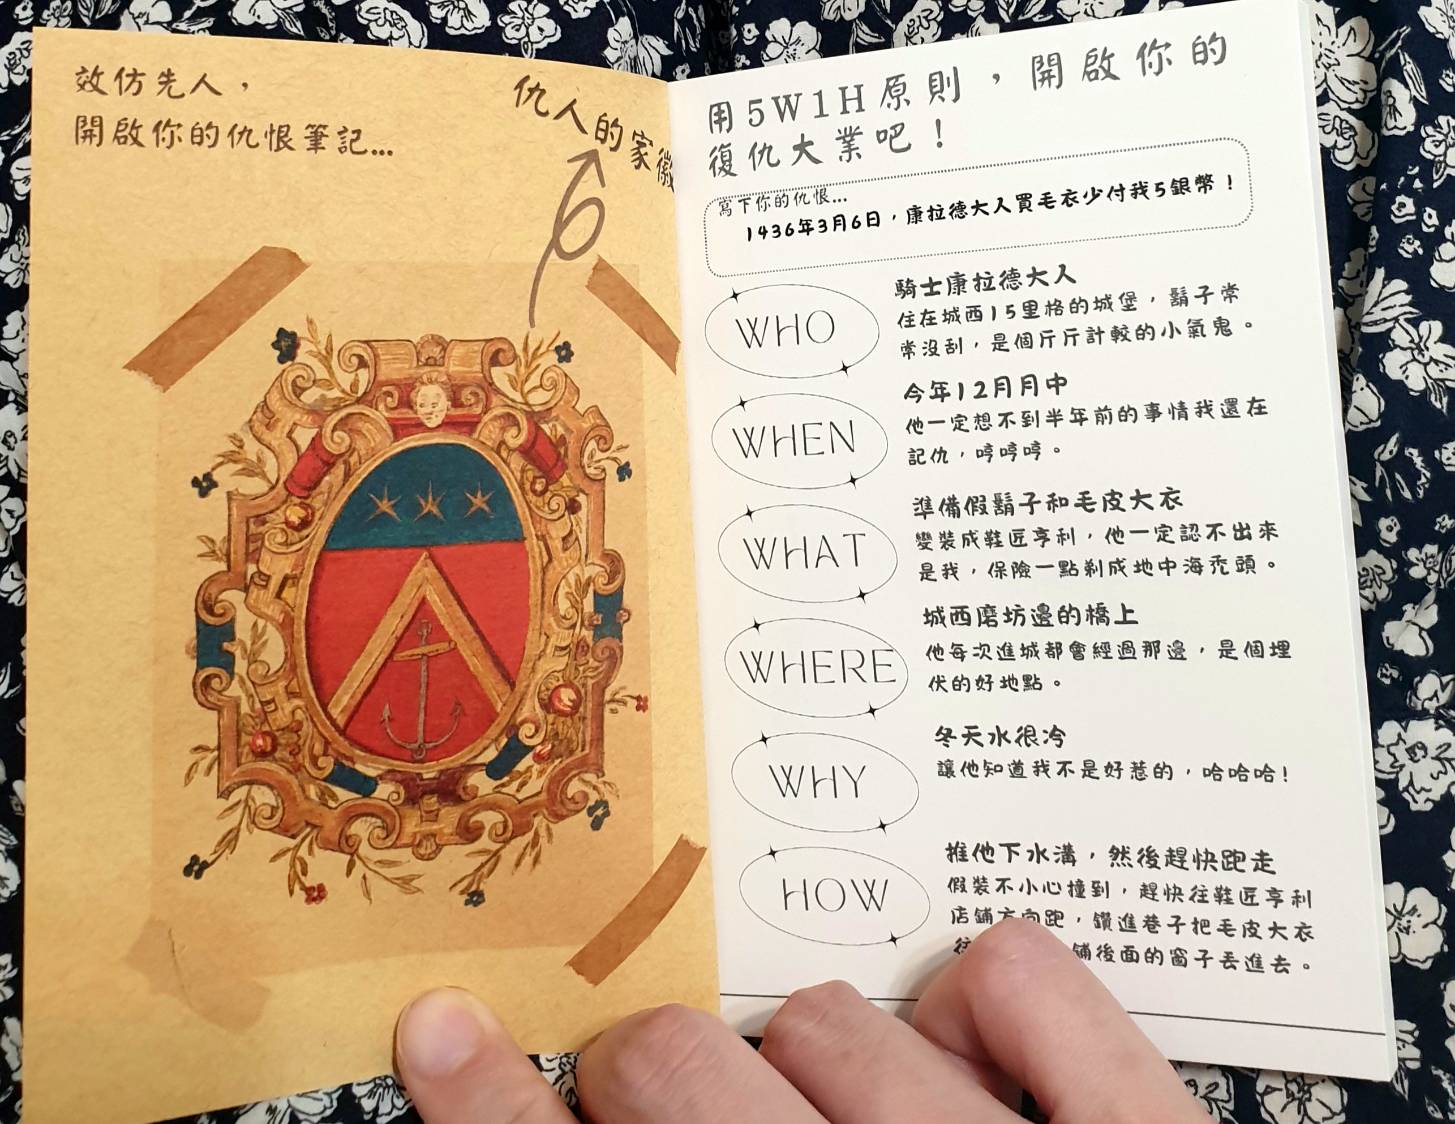 效仿先人，
開啟你的仇恨筆記...
仇人的家徽
用5W1H原則，開啟你的
復仇大業吧！
寫下你的仇恨...
1436年3月6日，康拉德大人買毛衣少付我5銀幣！
WHO
騎士康拉德大人
住在城西15里格的城堡，鬍子常
常沒刮，是個斤斤計較的小氣鬼。
WHEN
今年12月月中
他一定想不到半年前的事情我還在
記仇，哼哼哼。
WHAT
準備假鬍子和毛皮大衣
變裝成鞋匠亨利，他一定認不出來
是我，保險一點剃成地中海禿頭。
WHERE
城西磨坊邊的橋上
他每次進城都會經過那邊，是個埋
伏的好地點。
WHY
冬天水很冷
讓他知道我不是好惹的，哈哈哈！
HOW
推他下水溝，然後趕快跑走
假裝不小心撞到，趕快往鞋匠亨利
店鋪方向跑，鑽進巷子把毛皮大衣
往鋪後面的窗子丟進去。